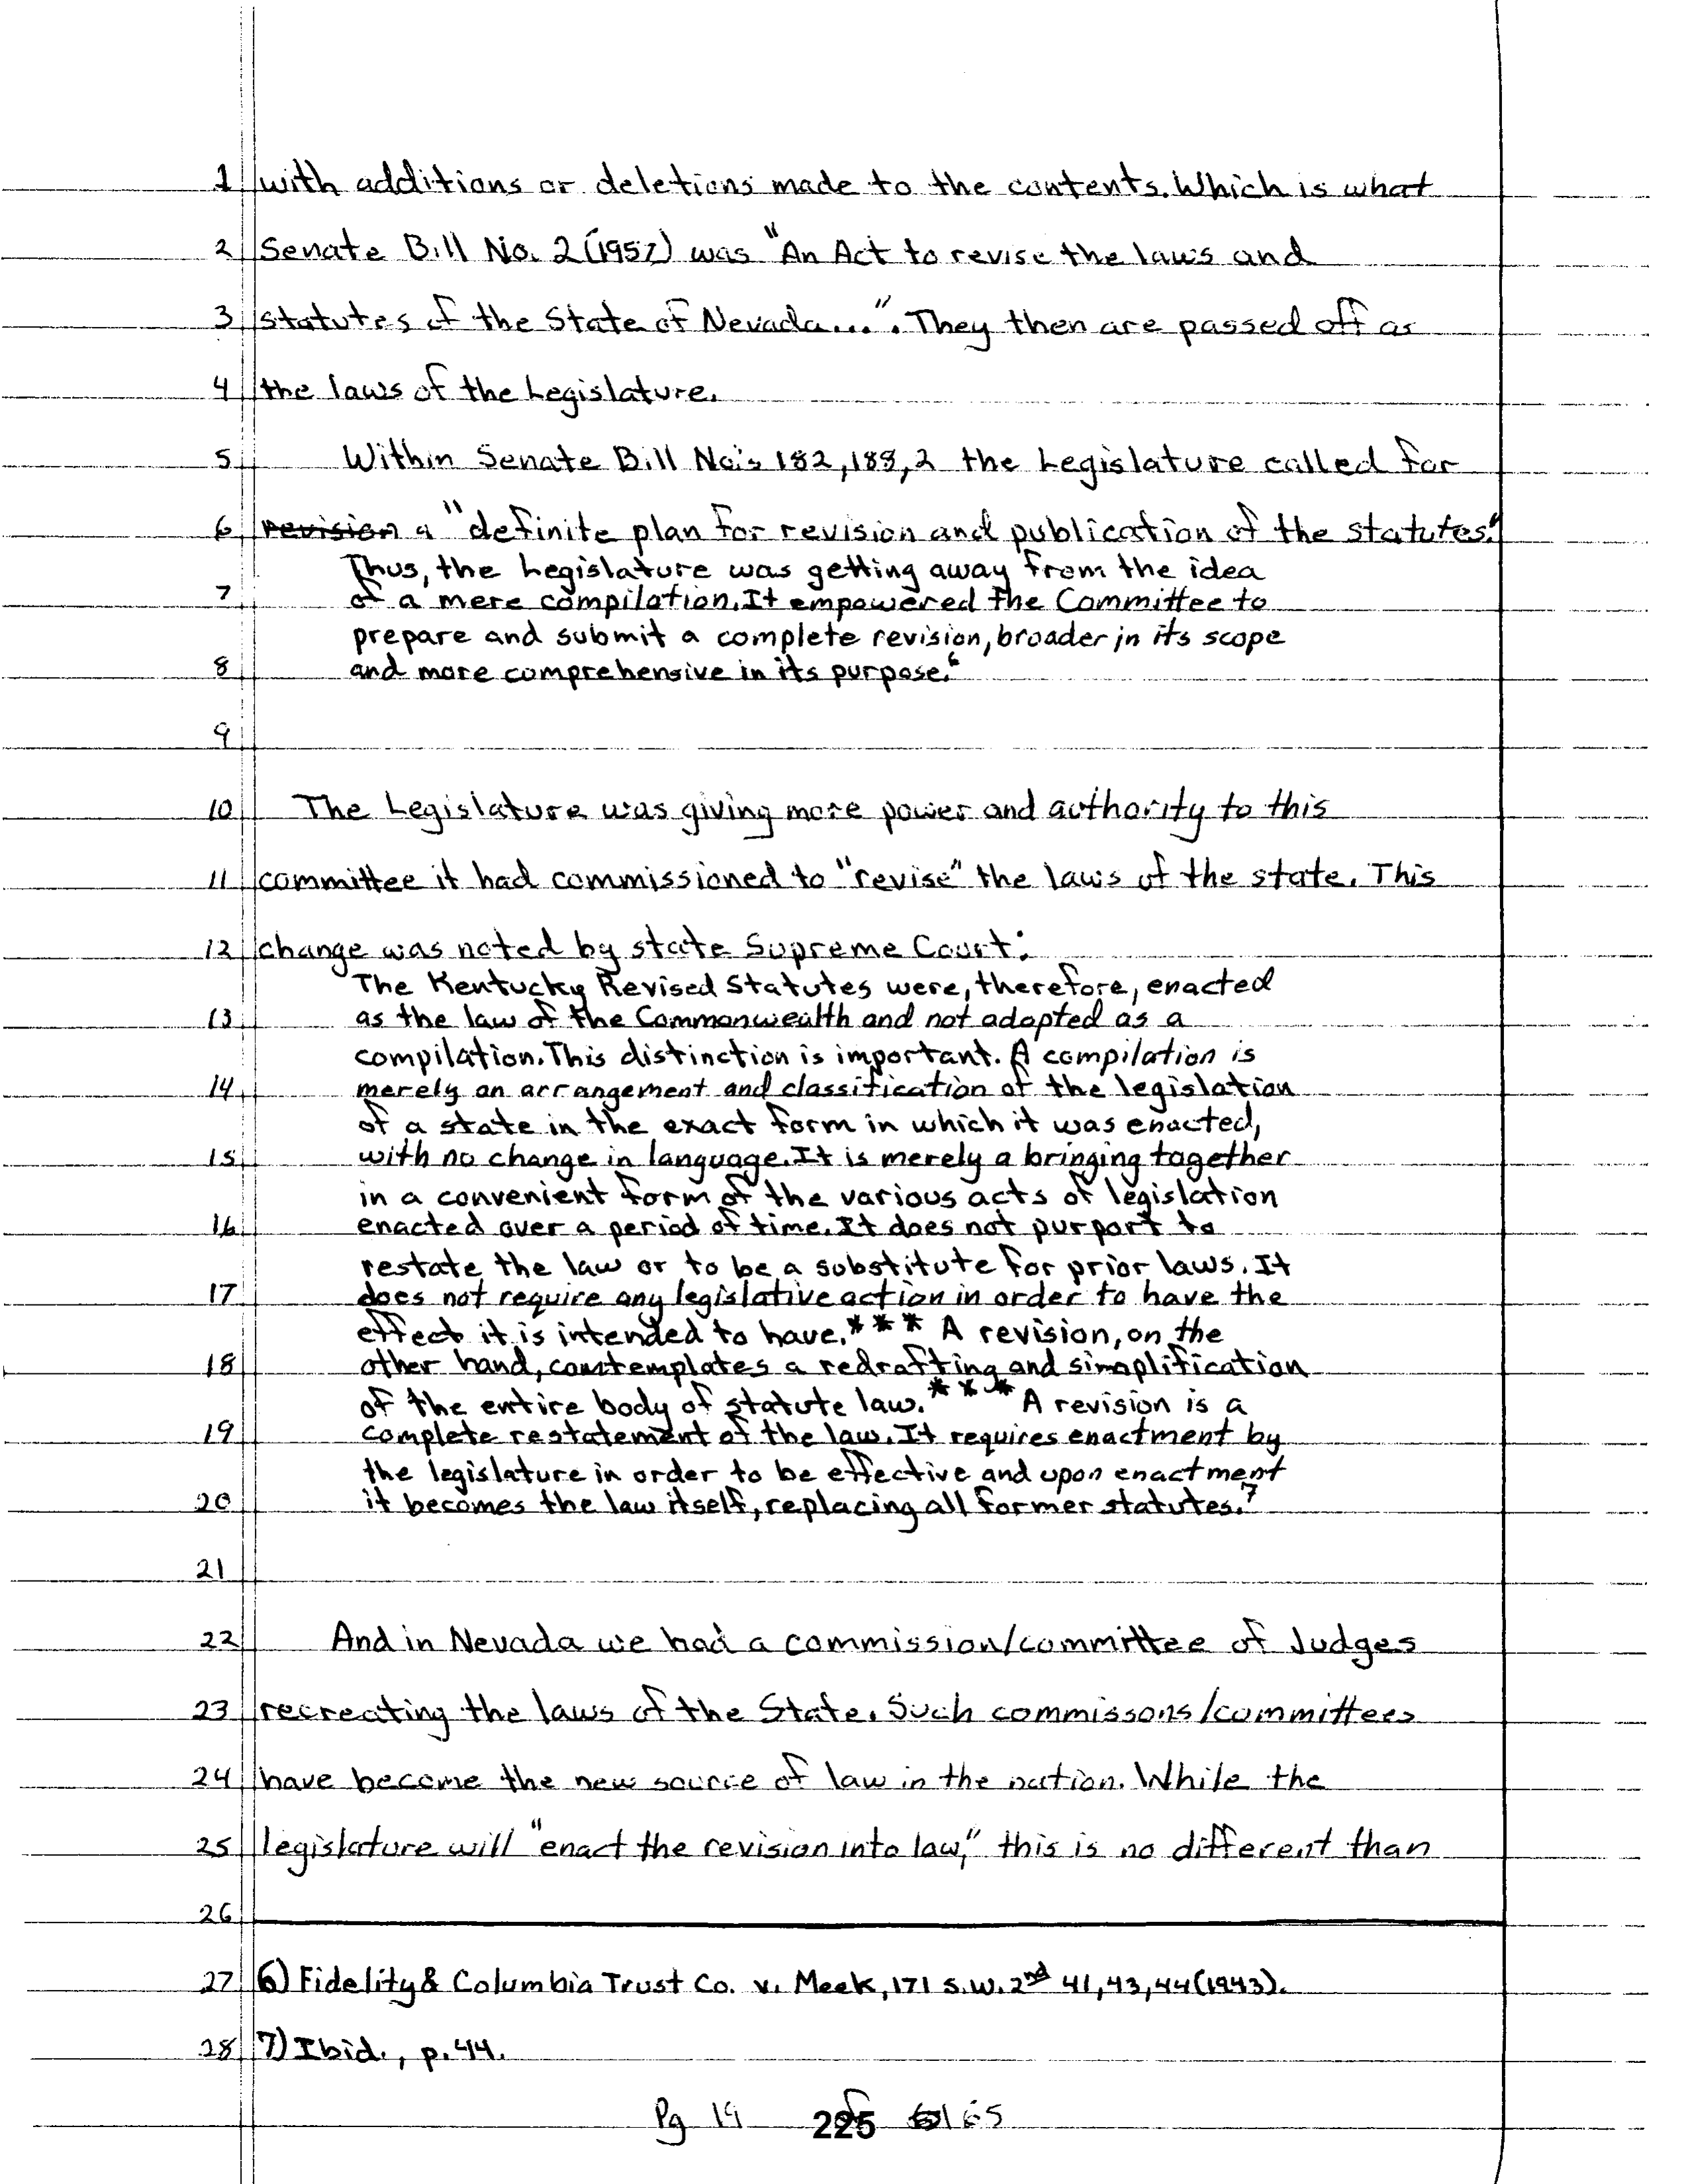 1 with additions or deletions made to the contents. Which is what
2 Senate Bill No. 2 (1957) was "An Act to revise the laws and
3 statutes of the State of Nevada...". They then are passed off as
4 the laws of the Legislature.
5 Within Senate Bill No's 182, 188, 2 the Legislature called for
6 revision a "definite plan for revision and publication of the statutes."
Thus, the Legislature was getting away from the idea
7 of a mere compilation. It empowered the Committee to
prepare and submit a complete revision, broader in its scope
8 and more comprehensive in its purpose.6
9
10 The Legislature was giving more power and authority to this
11 committee it had commissioned to "revise" the laws of the state. This
12 change was noted by state Supreme Court:
The Kentucky Revised Statutes were, therefore, enacted
13 as the law of the Commonwealth and not adopted as a
compilation. This distinction is important. A compilation is
14 merely an arrangement and classification of the legislation
of a state in the exact form in which it was enacted,
15 with no change in language. It is merely a bringing together
in a convenient form of the various acts of legislation
16 enacted over a period of time. It does not purport to
restate the law or to be a substitute for prior laws. It
17 does not require any legislative action in order to have the
effect it is intended to have.*** A revision, on the
18 other hand, contemplates a redrafting and simplification
of the entire body of statute law.*** A revision is a
19 complete restatement of the law. It requires enactment by
the legislature in order to be effective and upon enactment
20 it becomes the law itself, replacing all former statutes.7
21
22 And in Nevada we had a commission/committee of Judges
23 recreating the laws of the State. Such commissons/committees
24 have become the new source of law in the nation. While the
25 legislature will "enact the revision into law," this is no different than
26
27 6) Fidelity & Columbia Trust Co. v. Meek, 171 S.W. 2nd 41, 43, 44 (1943).
28 7) Ibid., p. 44.
Pg 19 of 165
225